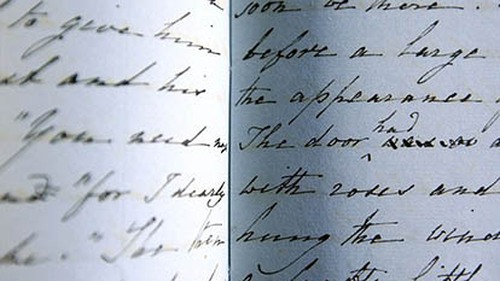 to give him
and his
"You need
"for I dearly
be." The
soon be there.
before a large
the appearance
The door had
with roses and
hung the wind
a